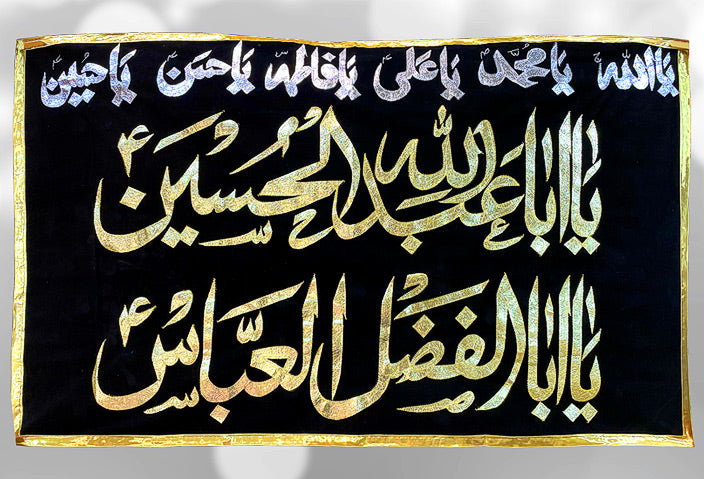 یا الله یا محمد یا علی یا فاطمه یا حسن یا حسین
یا ابا عبدالله الحسین ع
یا ابا الفضل العباس ع